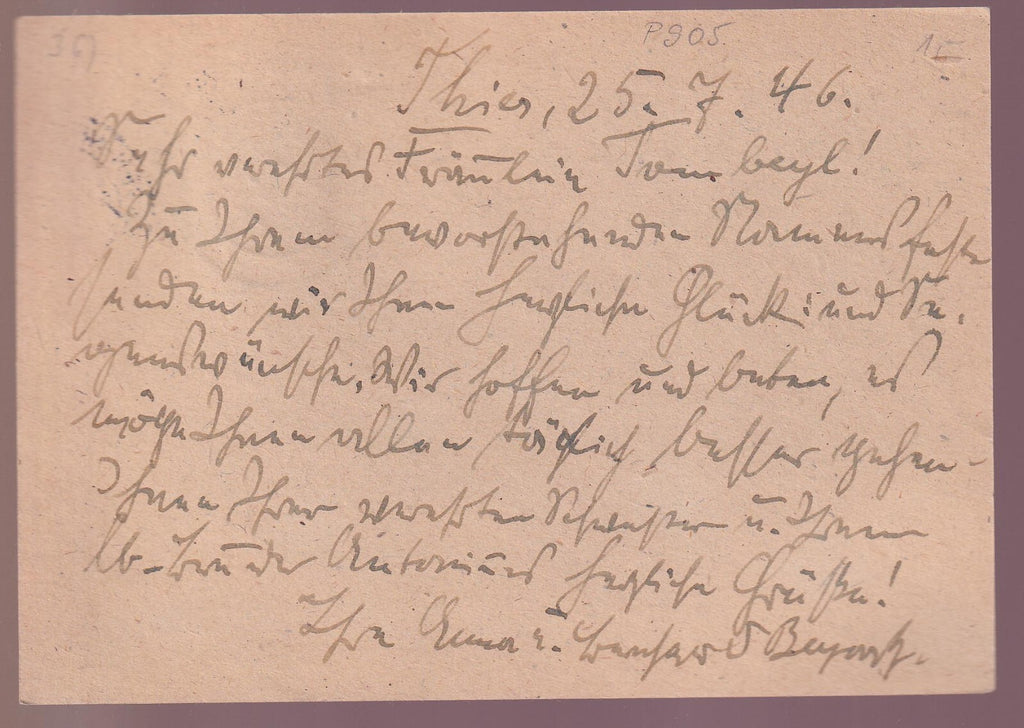 P905.
15
Thier, 25. 7. 46.
Sehr verehrtes Fräulein
Zu Ihrem bevorstehenden Namensfeste
senden wir Ihnen herzliche Glück: und Se-
genswünsche. Wir hoffen und beten, es
möge Ihnen allen täglich besser gehen –
Ihnen Ihrer verehrten Schwester u. Ihrem
lb. Bruder Antonius herzliche Grüße!
Ihre Anna u. Bernhard